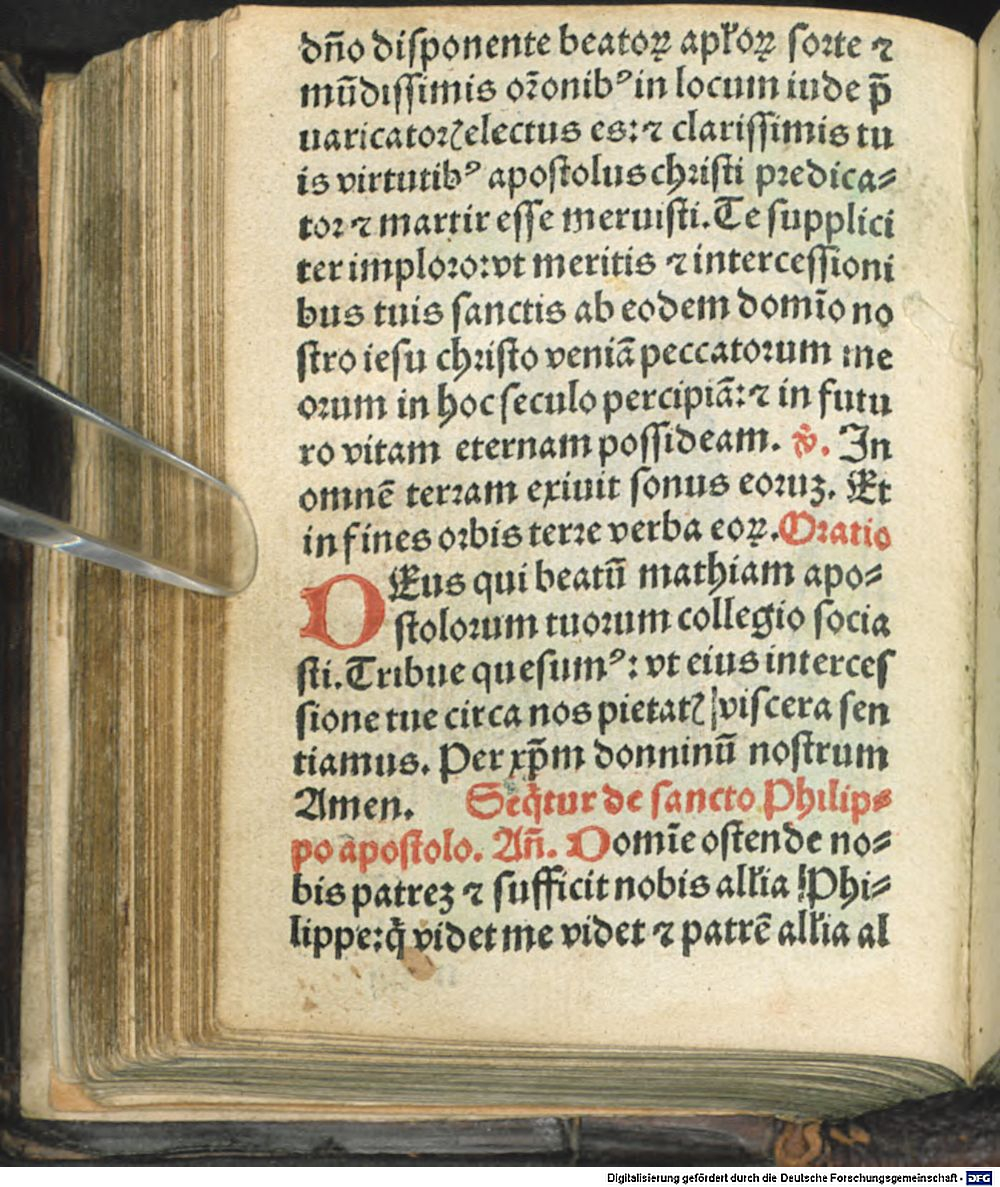 dn̄o disponente beatoꝝ apl̄'oꝝ sorte ⁊
mūdissimis or̄onibꝰ in locum iude p̄
uaricatorꝭ electus es: ⁊ clarissimis tu
is virtutibꝰ apostolus christi predica⸗
tor ⁊ martir esse meruisti. Te supplici
ter imploro: vt meritis ⁊ intercessioni
bus tuis sanctis ab eodem domīo no
stro iesu christo veniā peccatorum me
orum in hoc seculo percipiā: ⁊ in futu
ro vitam eternam possideam. ℣. In
omnē terram exiuit sonus eoruꝫ. Et
in fines orbis terre verba eoꝝ. Oratio
DEus qui beatū mathiam apo⸗
stolorum tuorum collegio socia
sti. Tribue quesumꝰ: vt eius interces
sione tue circa nos pietatꝭ viscera sen
tiamus. Per xp̄m donninū nostrum
Amen. Seq̄tur de sancto Philip⸗
po apostolo. Añ. Domīe ostende no⸗
bis patreꝫ ⁊ sufficit nobis all'ia Phi⸗
lippe: q̄ videt me videt ⁊ patrē all'ia al
Digitalisierung gefördert durch die Deutsche Forschungsgemeinschaft - DFG